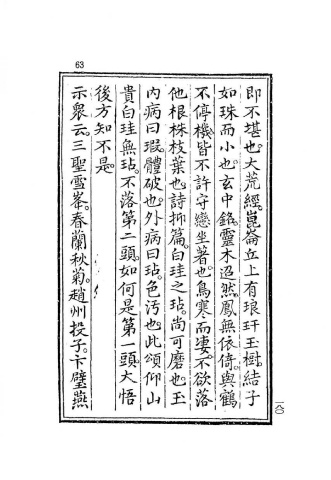 63
即不堪也。大荒經。崑崙丘上有琅玕玉樹。結子
如珠而小也。玄中錄。靈木迢然。鳳無依倚。與鶴
不停機。皆不許守戀坐著也。鳥寒而凄。不欲落
他根株枝葉也。詩抑篇。白珪之玷。尚可磨也。玉
內病曰瑕。體破也。外病曰玷。色污也。此頌仰山
貴白珪無玷。不落第二頭。如何是第一頭。大悟
後方知不是。
示衆云。三聖雪峯。春蘭秋菊。趙州投子。卞璧燕